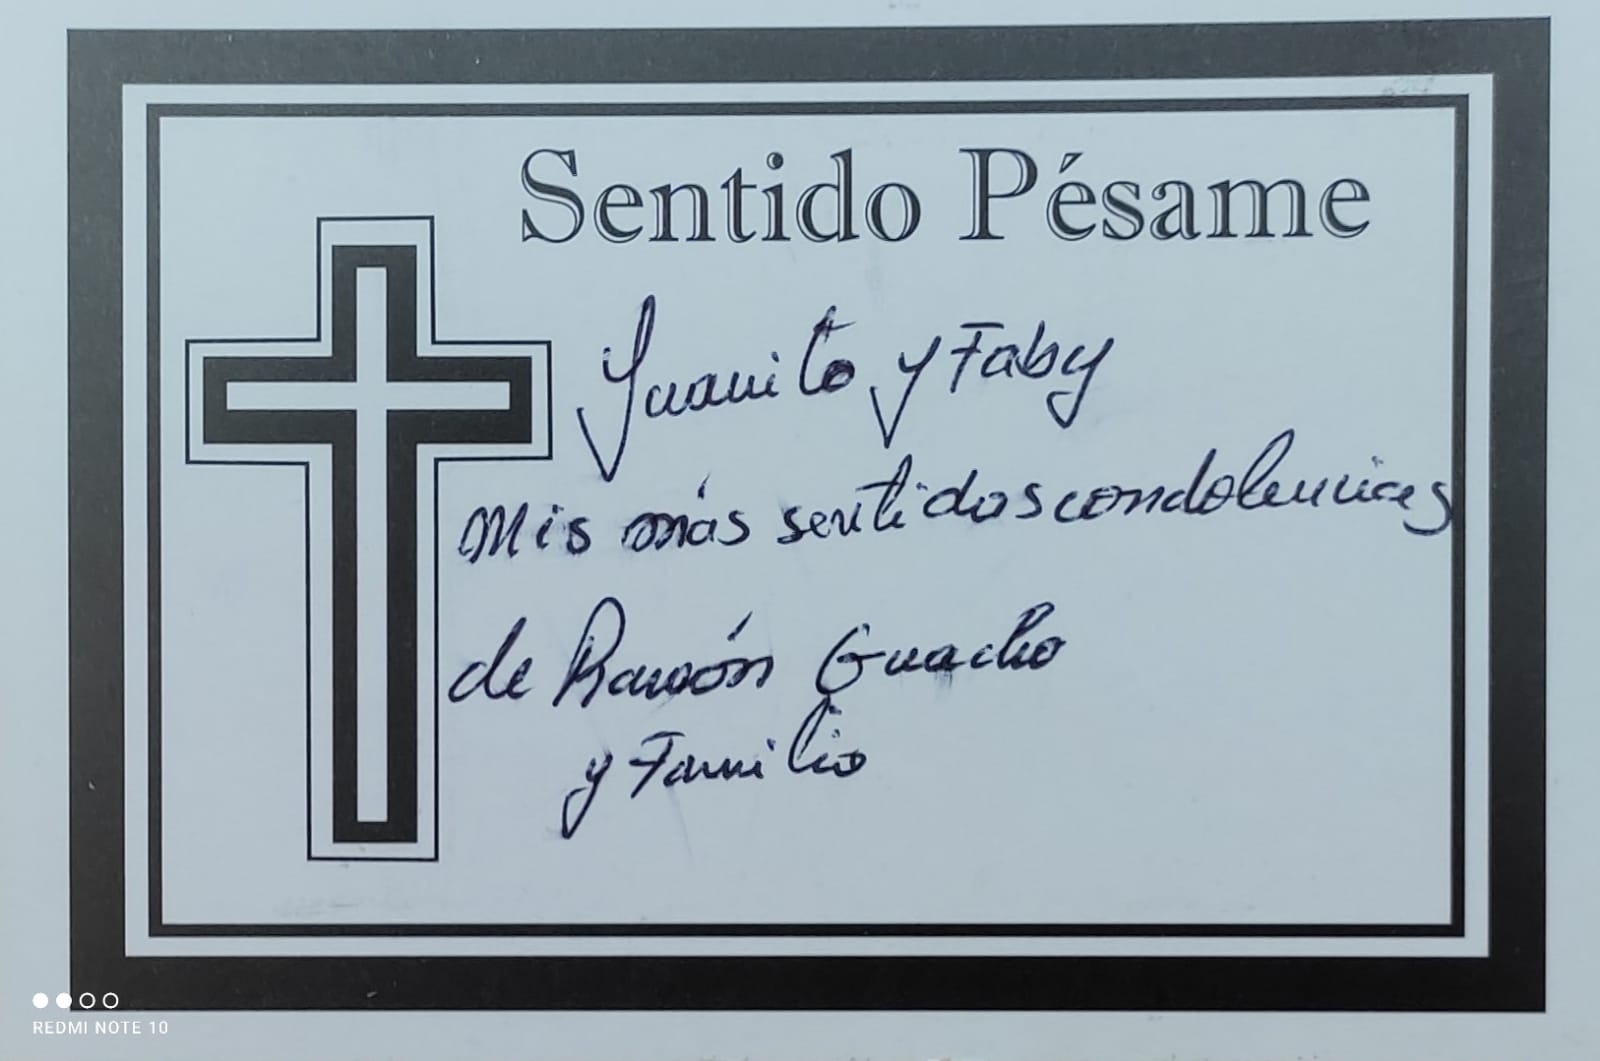 Sentido Pésame
Juanito y Faby
Mis más sentidas condolencias
de Ramón Guacho
y Familia
REDMI NOTE 10